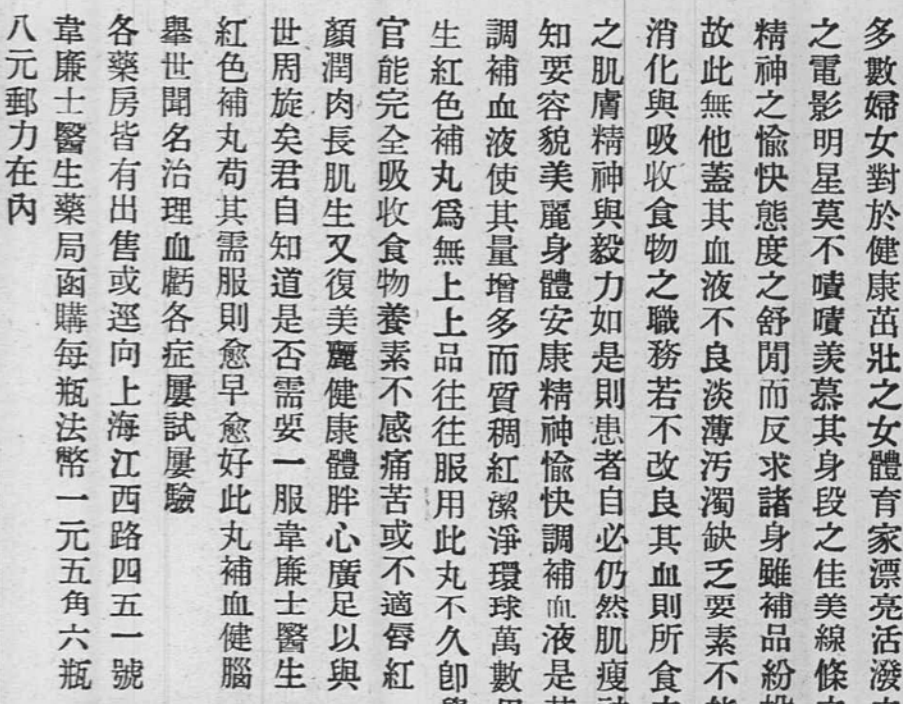 多數婦女對於健康茁壯之女體育家漂亮活潑
之電影明星莫不嘖嘖羨慕其身段之佳美線條
精神之愉快態度之舒閒而反求諸身雖補品紛
故此無他蓋其血液不良淡薄污濁缺乏要素不
消化與吸收食物之職務若不改良其血則所食
之肌膚精神與毅力如是則患者自必仍然肌瘦
知要容貌美麗身體安康精神愉快調補血液是
調補血液使其量增多而質稠紅潔淨環球萬數
生紅色補丸爲無上上品往往服用此丸不久卽
官能完全吸收食物養素不感痛苦或不適唇紅
顏潤肉長肌生又復美麗健康體胖心廣足以與
世周旋矣君自知道是否需要一服韋廉士醫生
紅色補丸苟其需服則愈早愈好此丸補血健腦
舉世聞名治理血虧各症屢試屢驗
各藥房皆有出售或逕向上海江西路四五一號
韋廉士醫生藥局函購每瓶法幣一元五角六瓶
八元郵力在內